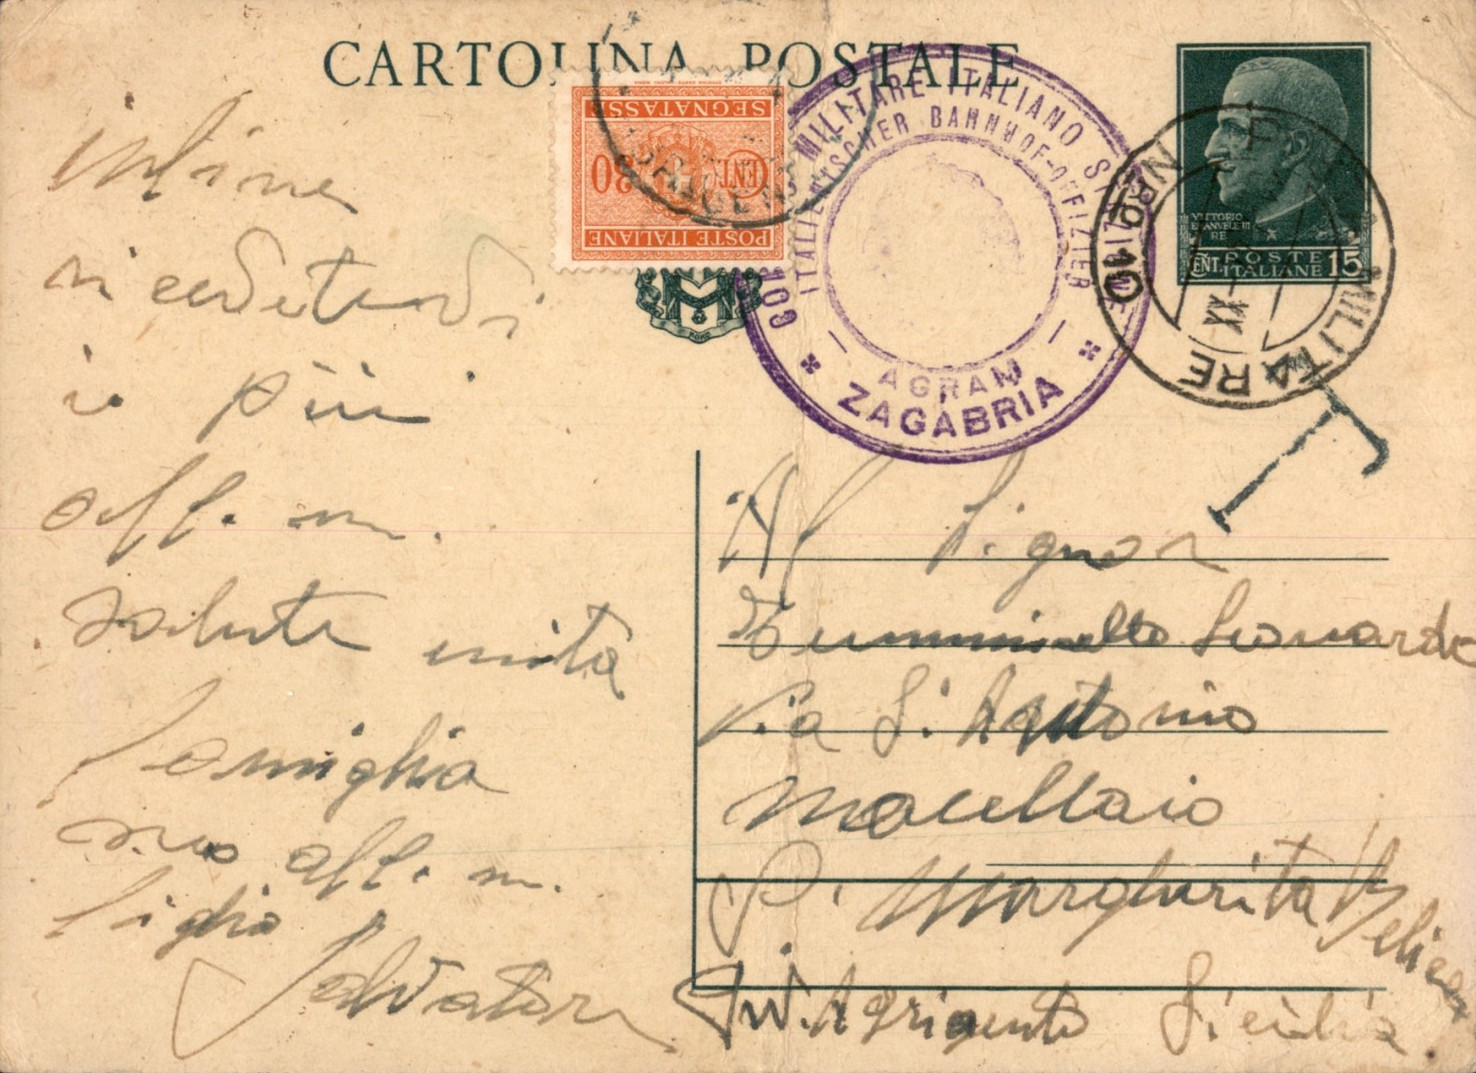 CARTOLINA POSTALE
SEGNATASSE
CENT.
POSTE ITALIANE
MILITARE ITALIANO STAZIONE
ITALIENISCHER BAHNHOF-OFFIZIER
AGRAM
ZAGABRIA
VITTORIO
EMANUELE III
RE
CENT. POSTE ITALIANE 15
MILITARE
NRO 10
XX
T
infine
ricevetevdi
i più
aff. m.
saluti unita
famiglia
suo aff. m.
figlio
Salvatore
Al Signor
Tumminello Leonardo
Via S. Antonio
Macellaio
S. Margherita Belice
Prov. Agrigento Sicilia.